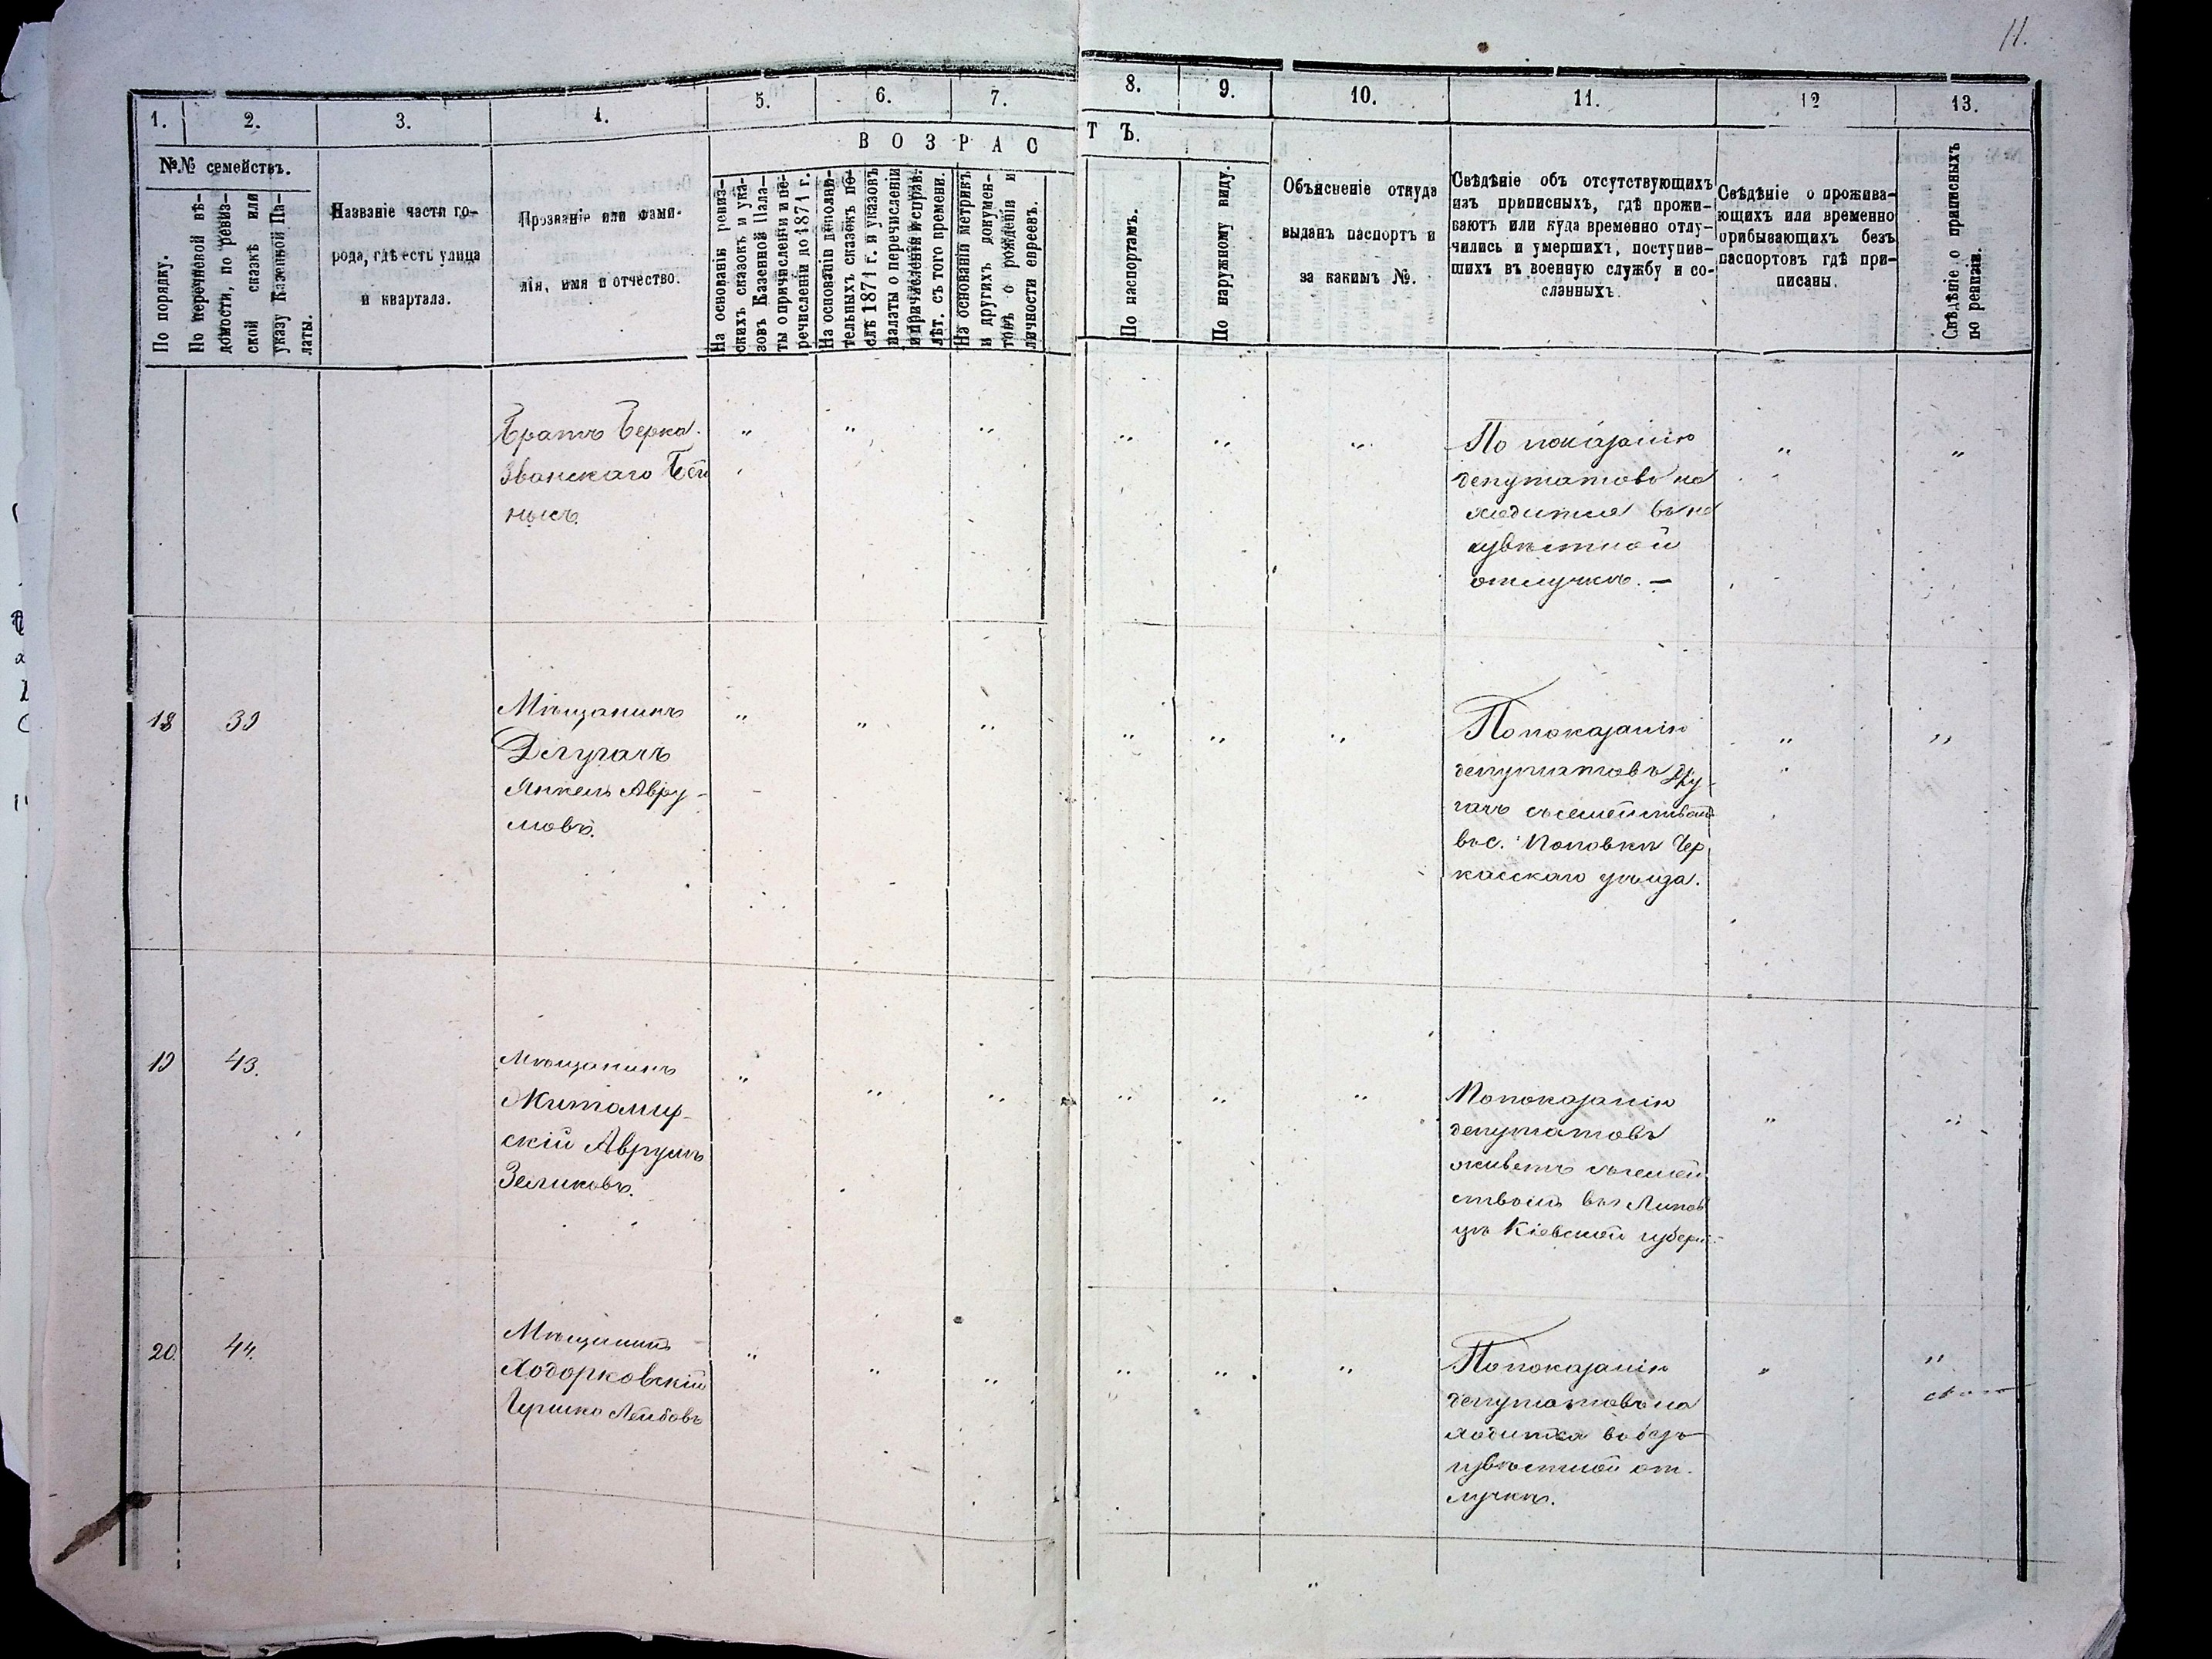 11.
1.
2.
3.
4.
5.
6.
7.
8.
9.
10.
11.
12
13.
В О З Р А С
Т Ъ.
№№ семействъ.
По порядку.
По перечневой вѣ-
домости, по ревиз-
ской сказкѣ или
указу Казенной Па-
латы.
Названіе части го-
рода, гдѣ есть улица
и квартала.
Прозваніе или фами-
лія, имя и отчество.
На основаніи ревиз-
скихъ сказокъ и ука-
зовъ Казенной Пала-
ты о причисленіи и пе-
речисленіи до 1871 г.
На основаніи дополни-
тельныхъ сказокъ по-
слѣ 1871 г. и указовъ
палаты о перечисленіи
и причисленіи и справ.
лѣт. съ того времени.
На основаніи метрикъ
и другихъ докумен-
товъ о рожденіи и
личности евреевъ.
По паспортамъ.
По наружному виду.
Объясненіе откуда
выданъ паспортъ и
за какимъ №.
Свѣдѣніе объ отсутствующихъ
изъ приписныхъ, гдѣ прожи-
ваютъ или куда временно отлу-
чились и умершихъ, поступив-
шихъ въ военную службу и со-
сланныхъ.
Свѣдѣніе о прожива-
ющихъ или временно
прибывающихъ безъ
паспортовъ гдѣ при-
писаны.
Свѣдѣніе о приписныхъ
по ревизіи.
Братъ Берка
Званскаго Бей
нысъ.
" " " " " " " "
По показанію
депутатовъ на
ходится въ не
извѣстной
отлучкѣ. —
18 39
Мѣщанинъ
Длугачъ
Янкель Авру-
мовъ.
" " " " " " " "
По показанію
депутатовъ Длу-
гачъ съ семействомъ
въ с. Поповкѣ Чер
касскаго уѣзда.
19 43.
Мѣщанинъ
Житомир-
скій Аврумъ
Зеликовъ.
" " " " " " " "
По показанію
депутатовъ
живетъ съ семей
ствомъ въ Липов
цѣ Кіевской губерн.
20. 44.
Мѣщанинъ
Ходорковскій
Гершко Лейбовъ
" " " " " " " "
По показанію
депутатовъ на
ходится въ безъ
извѣстной от-
лучкѣ.